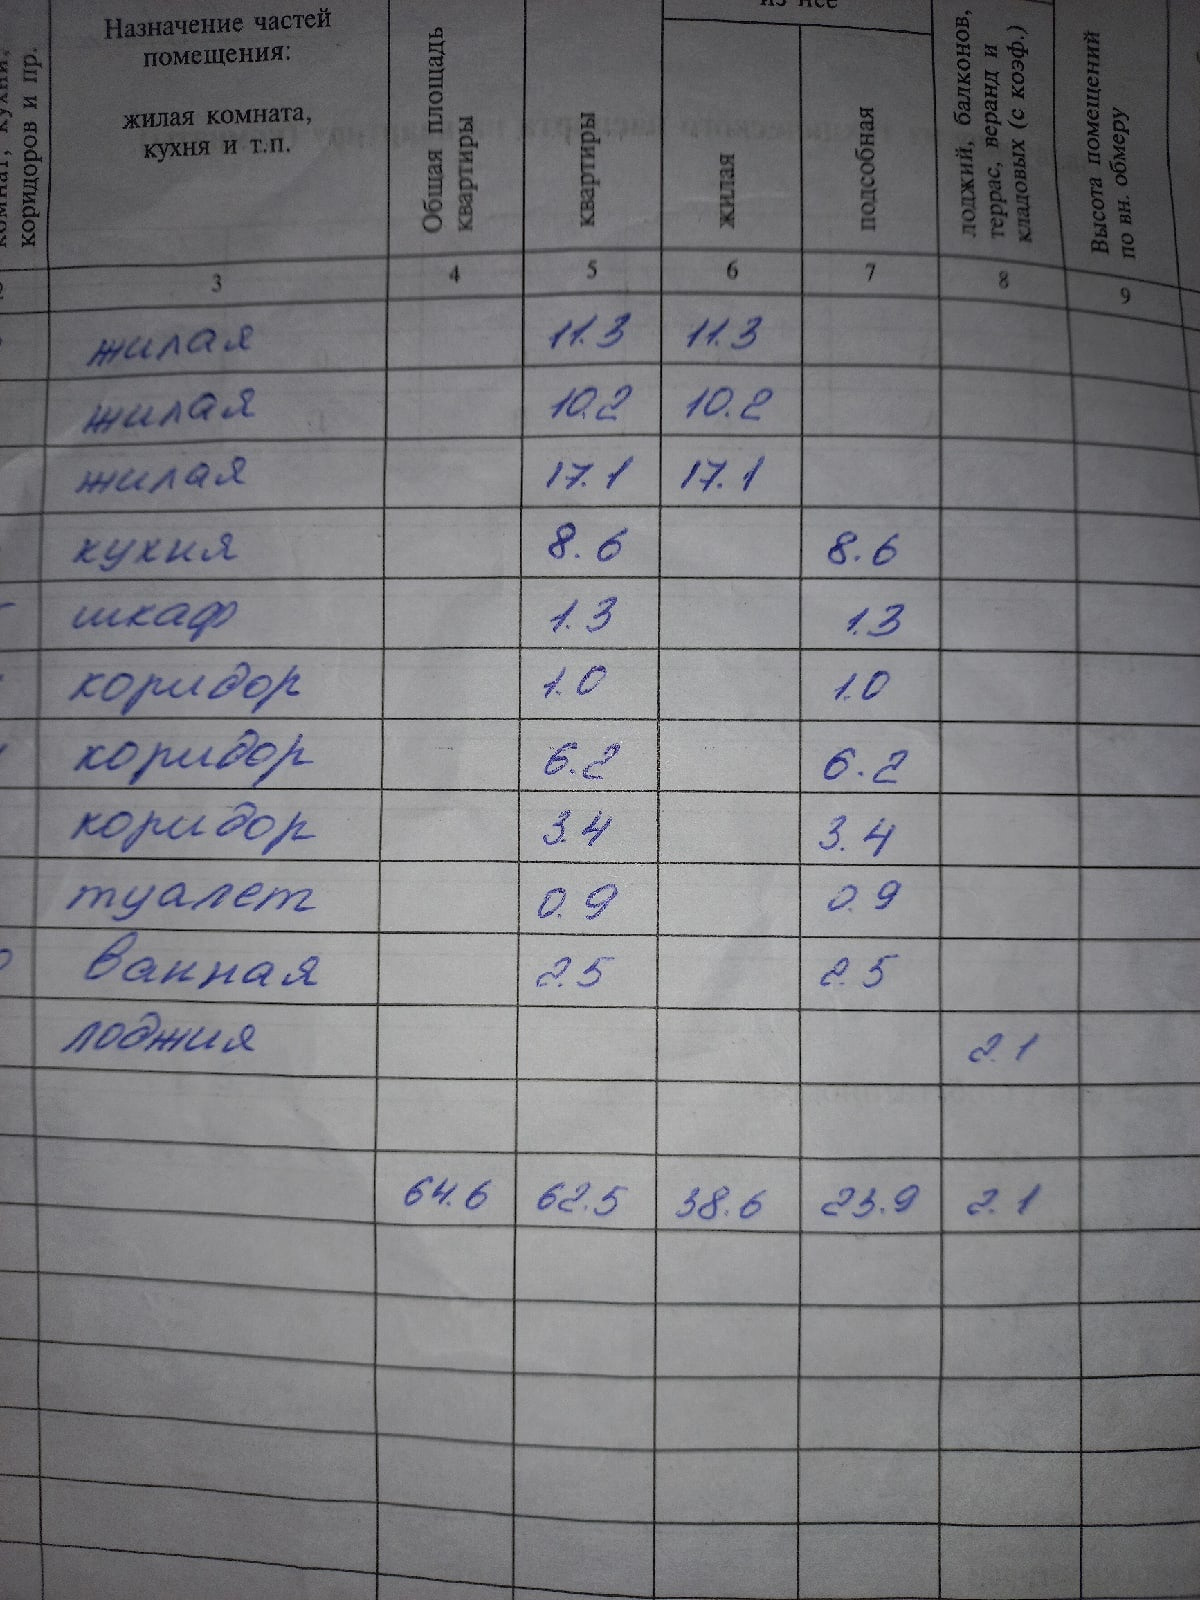 комнат, кухни,
коридоров и пр.
Назначение частей
помещения:
жилая комната,
кухня и т.п.
Общая площадь
квартиры
из нее
квартиры
жилая
подсобная
лоджий, балконов,
террас, веранд и
кладовых (с коэф.)
Высота помещений
по вн. обмеру
3 4 5 6 7 8 9
жилая 11.3 11.3
жилая 10.2 10.2
жилая 17.1 17.1
кухня 8.6 8.6
шкаф 1.3 1.3
коридор 1.0 1.0
коридор 6.2 6.2
коридор 3.4 3.4
туалет 0.9 0.9
ванная 2.5 2.5
лоджия 2.1
64.6 62.5 38.6 23.9 2.1